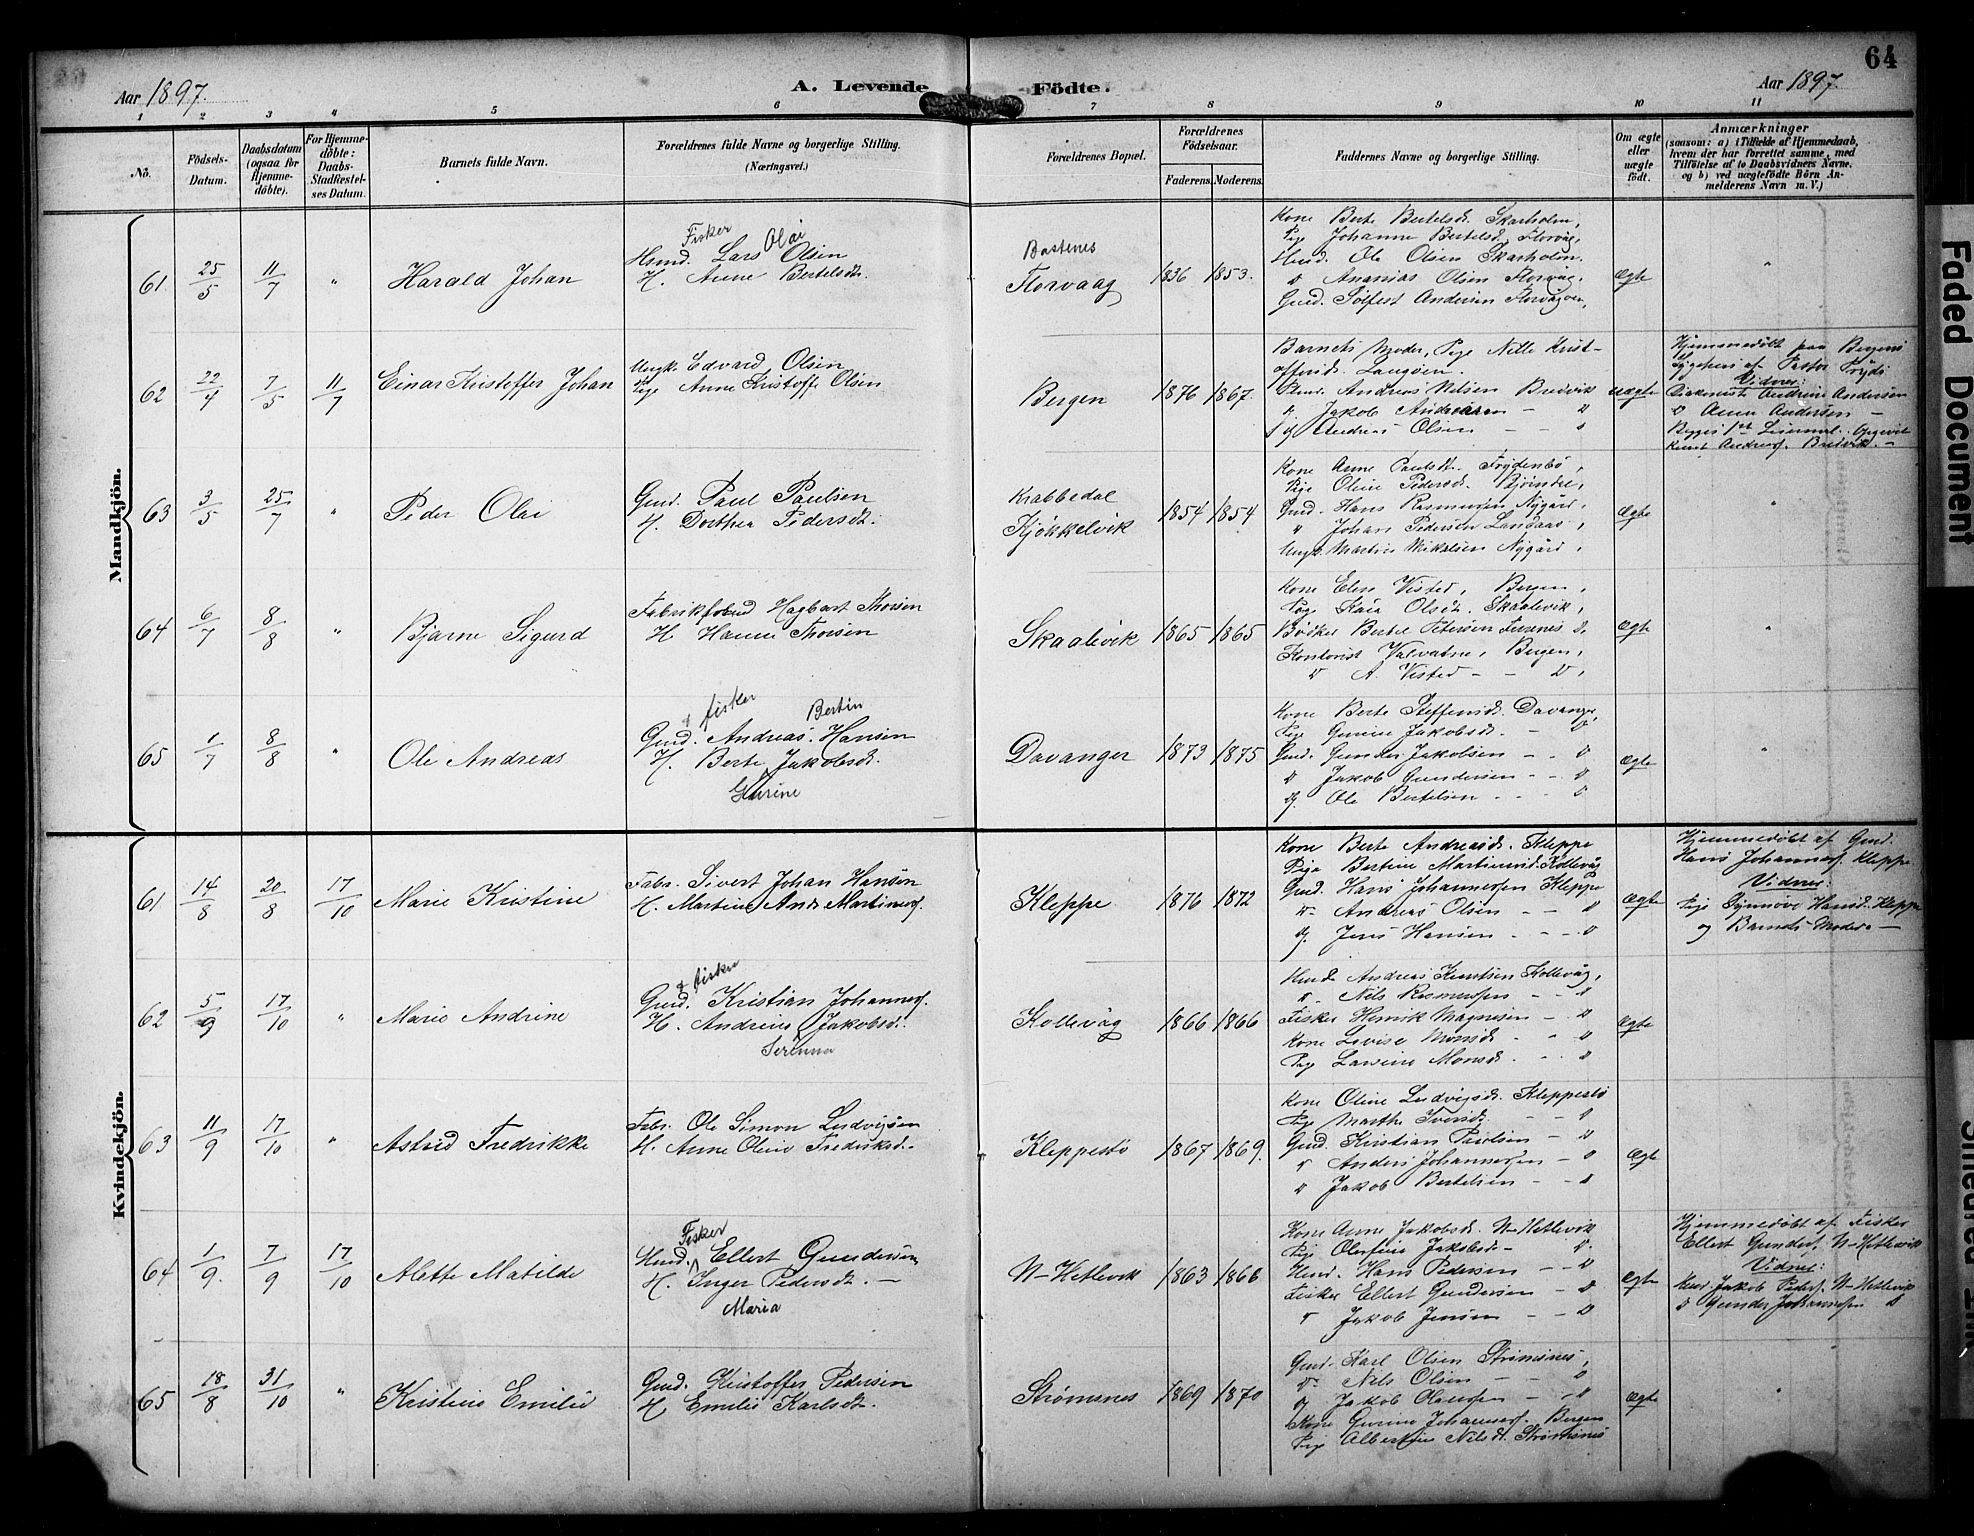 64
Aar 1897.
A. Levende Födte.
Aar 1897.
1 2 3 4 5 6 7 8 9 10 11
No.
Födsels-Datum.
Daabsdatum (ogsaa for Hjemme-döbte).
For Hjemme-döbte: Daabs-Stadfæstel-ses Datum.
Barnets fulde Navn.
Forældrenes fulde Navne og borgerlige Stilling.
(Næringsvei.)
Forældrenes Bopæl.
Forældrenes Födselsaar.
Faderens. Moderens.
Faddernes Navne og borgerlige Stilling.
Om ægte eller uægte födt.
Anmærkninger
(saasom: a) i Tilfælde af Hjemmedaab,
hvem der har forrettet samme, med
Tilföielse af to Daabsvidners Navne,
og b) ved uægtefödte Börn An-
melderens Navn m. V.)
Mandkjön.
61 25/5 11/7 " Harald Johan
Fisker Olai
Hsmd. Lars Olsen
H. Anne Bertelsdt.
Bastenes
Florvaag 1836 1853.
Kone Berte Bertelsd. Skarholm,
Pige Johanne Bertelsd. Florvåg,
Husd. Ole Olsen Skarholm.
D Ananias Olsen Florvåg.
Gmd. Sölfest Andersen Florvågøen,
Ægte "
62 22/4 7/5 11/7 Einar Kristoffer Johan
Ungk. Edvard Olsen
Pige Anne Kristoff. Olsen
Bergen 1876 1867.
Barnets Moder, Pige Nille Krist-
offersd. Langöen.
Andreas Nilsen Bredvik
D Jakob Andreassen - D
Andreas Olsen - - D
uægte
Hjemmedöbt paa Bergens
Sygehus af Pastor Frydö
Vidner:
Diakonisse Andrine Andersen
D Anna Andersen -
63 3/5 25/7 " Peder Olai
Gmd. Paul Paulsen
H. Dorthea Pedersdt.
Krabbedal
Kjökkelvik 1854 1854
Kone Anne Paulsdt. Frydenbö,
Pige Oline Pedersd. Bjöndal,
Gmd. Hans Rasmussen Nygård,
" Johan Pedersen Landaas,
Ungk. Martin Mikalsen Nygård,
Ægte "
64 6/7 8/8 " Bjarne Sigurd
Hagbart Thorsen
H Hanna Thorsen
Skaalevik 1865 1865
Kone Elen Visted, Bergen,
Pige Kaia Olsdt. Skaalevik,
Bödker Bertel Petersen D,
Kontorist Valvatne, Bergen,
D A. Visted - - D,
Ægte "
65 1/7 8/8 " Ole Andreas
& fisker Bertin
Gmd. Andreas Hansen
H. Berte Jakobsdt.
Gurine
Davanger 1873 1875
Kone Berte Steffensd. Davanger,
Pige Gurine Jakobsd. - D
Gmd. Gunder Jakobsen - - D
D Jakob Gundersen - - D
og Ole Bertelsen - - - D
Ægte "
Kvindekjön.
61 14/8 20/8 17/10 Marie Kristine
Fabr. Sivert Johan Hansen
H. Martine And. Martinusd.
Kleppe 1876 1872
Kone Berte Andreasd. Kleppe
Pige Bertine Martinusd. Kollevåg
Gmd. Hans Johannessen Kleppe
D Andreas Olsen - - D
og Jens Hansen - - - D
Ægte
Hjemmedöbt af Gmd.
Hans Johannesf. Kleppe
Vidner:
Pige Synnöve Hansd. Kleppe
og Barnets Moder. -
62 5/9 17/10 " Marie Andrine
& fisker
Gmd. Kristian Johannesf.
H. Andrine Jakobsd.
Serenna
Kollevåg 1866 1866
Husd. Andreas Knutsen Kollevåg,
D Nils Rasmussen - - D
Fisker Henrik Magnesen - D
Kone Lovise Monsd. - - D
Pige Larsine Monsd. - - D
Ægte
63 11/9 17/10 " Astrid Fredrikke
Fabr. Ole Simon Ludvigsen
H. Anne Oline Fredriksd. -
Kleppestö 1867 1869.
Kone Oline Ludvigsd. Kleppestö
Pige Marthe Iversd. - - D
Gmd. Kristian Paulsen - D
D Anders Johannessen - D
D Jakob Bertelsen - - D
Ægte
64 1/9. 7/9 17/10 Alette Matilde
Fisker
Husd. Ellert Gundersen
H. Inger Pedersdt. -
Maria
N-Hetlevik 1863 1866
Kone Anne Jakobsd. N-Hetlevik
Pige Olufine Jakobsd. - D.
Husd. Hans Pedersen - - D
Fisker Ellert Gundersen - D
D Jakob Jensen - - D
Ægte
Hjemmedöbt af Fisker
Ellert Gundesf. N-Hetlevik
Vidner:
Jakob Pedersf. N-Hetlevik
D Gunder Johannessen D
65 18/8 31/10 " Kristine Emilie
Gmd. Kristoffer Pedersen
H. Emilie Karlsdt.
Strömsnes 1869 1870
Gmd. Karl Olsen Strömsnes,
D Nils Olsen - - D
og Jakob Olaussen - - D
Kone Gurine Johannesd. Bergen
Pige Albertine Nilsdt. Strömsnes
Ægte "
Faded Document
Smeared Ink